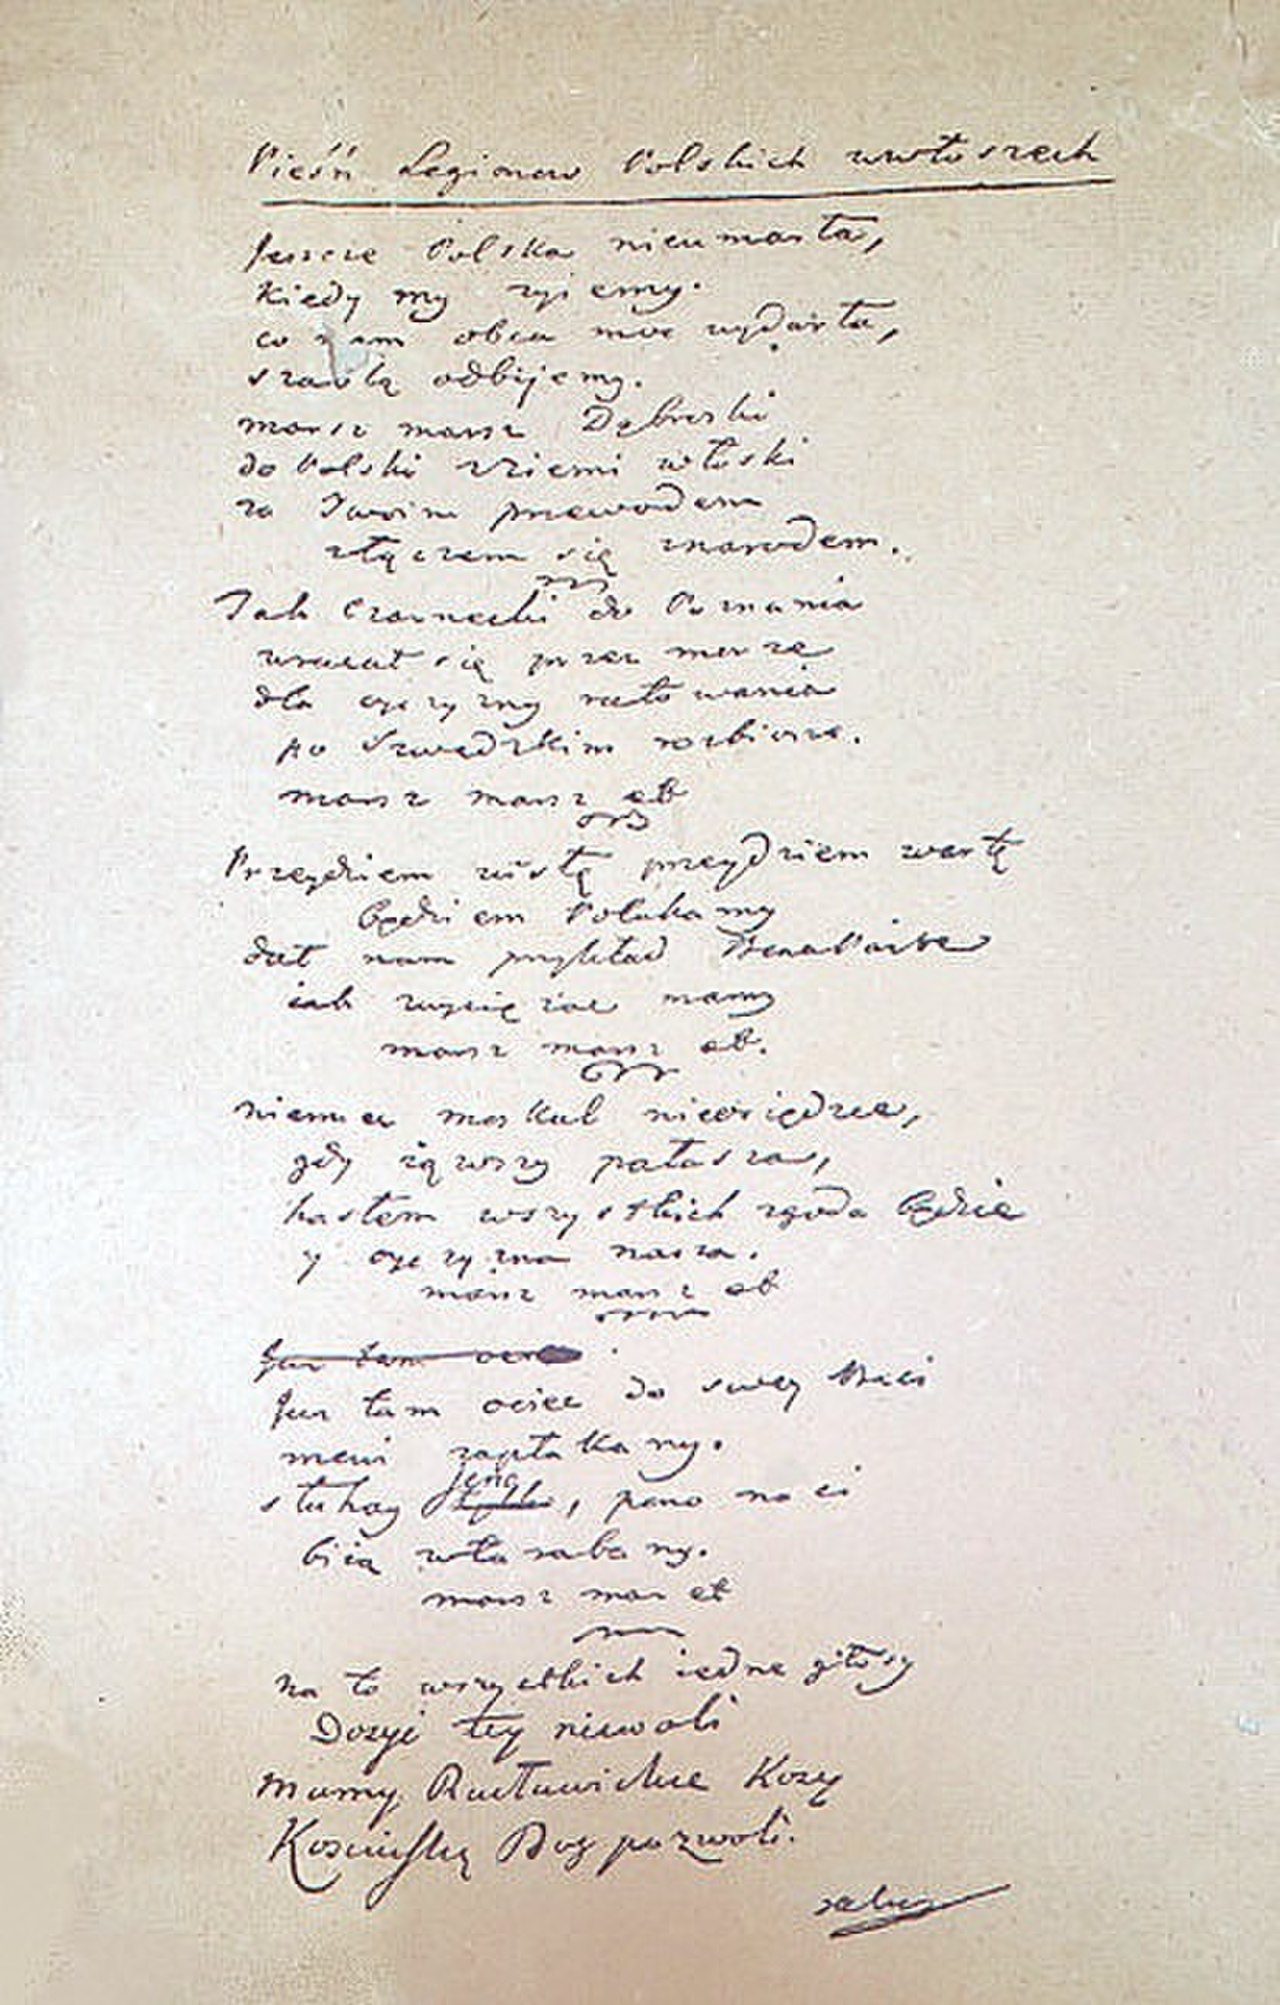 Pieśń Legionow Polskich wewłoszech
Jeszcze Polska nieumarła,
kiedy my zyiemy.
co nam obca moc wydarła,
szablą odbijemy.
marsz marsz Dąbroski
do Polski zziemi włoski
za Twoim przewodem
złączem się znarodem.
Jak Czarnecki do Poznania
wracał się przez morze
dla oyczyzny ratowania
po Szwedzkim rozbiorze.
marsz marsz etc
Przeydziem wisłę przeydziem wartę
będziem Polakamy
dał nam przykład Bonaparte
iak zwyciężać mamy
marsz marsz etc.
niemiec moskal nieosiędzie,
gdy iąwszy pałasza,
hasłem wszystkich zgoda będzie
y oyczyzna nasza.
marsz marsz etc
Jusz tam ociec
Jusz tam ociec do swey Basi
mewi zapłakany.
słuhay jeno, pono nasi
biią wtarabany.
marsz mar etc
na to wszystkich iedne głosy
Dosyć tey niewoli
mamy Racławickie Kosy
Kosciuszkę Bog pozwoli.